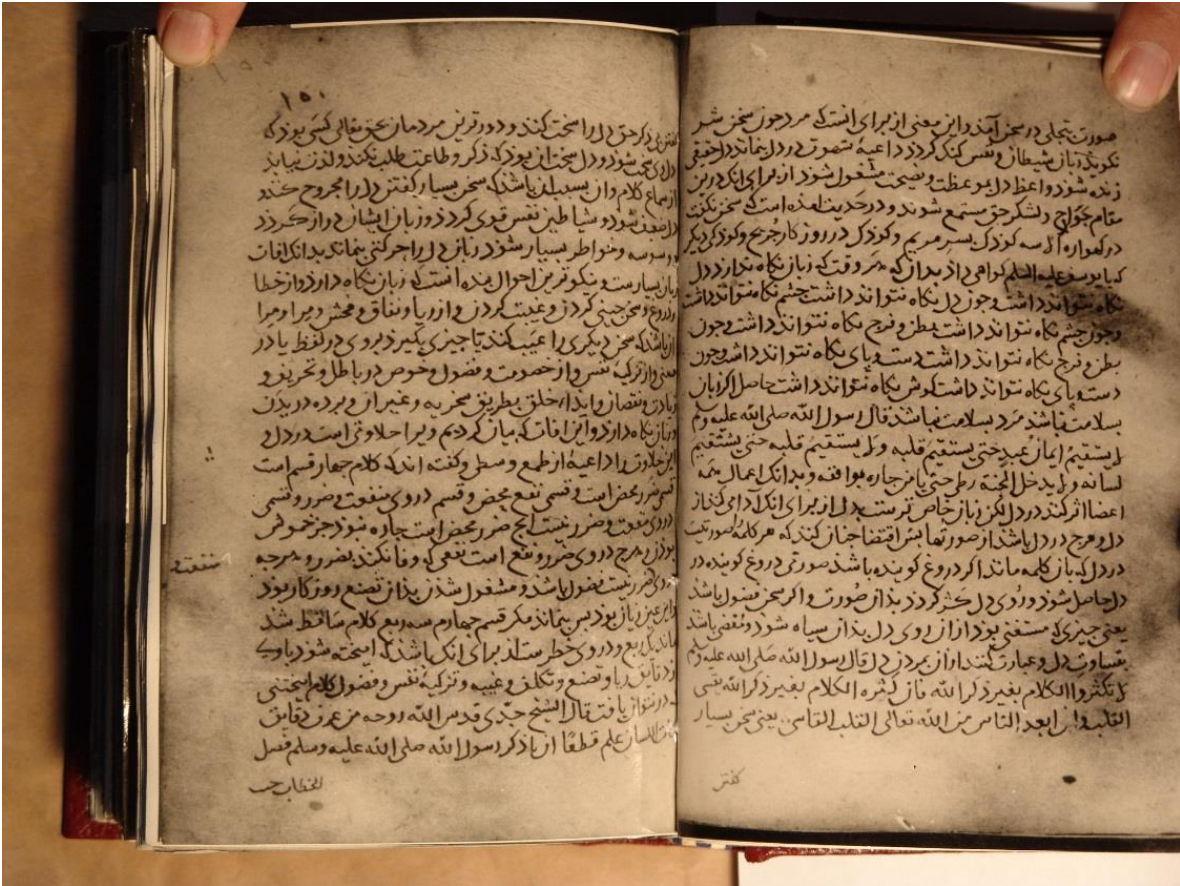 صورت بتجلی در سخن آمد و این معنی از برای انست که مرد جون سخن شر
نکوید زبان شیطان و نفس کند کردد داعیهٔ شهوت در دل بماند دل حقیقی
زنده شود واعظ دل بموعظت و نصیحت مشغول شود از برای انک درین
مقام جوارح و لشکر حق مستمع شوند و در حدیث امده است که سخن نکفت
در کهواره الا سه کودک بسر مریم و کودک در روز کار جریح و کودکی دیکر
که با یوسف علیه السلم کواهی داذ بدان که هر وقت که زبان نکاه ندارد دل
نکاه نتواند داشت و جون دل نکاه نتواند داشت جشم نکاه نتواند داشت
و جون جشم نکاه نتواند داشت بطن و فرج نکاه نتواند داشت و جون
بطن و فرج نکاه نتواند داشت دست و پای نکاه نتواند داشت و جون
دست و پای نکاه نتواند داشت کوش نکاه نتواند داشت حاصل اکر زبان
بسلامت نباشد مرد بسلامت نباشد قال رسول الله صلی الله علیه وسلم
لا یستقیم ایمان عبد حتی یستقیم قلبه ولا یستقیم قلبه حتی یستقیم
لسانه ولا یدخل الجنة رجل حتی یامن جاره بوایقه و بدانک اعمال همه
اعضا اثر کند در دل لکن زبان خاص ترست بدل از برای انک ادا می کند از
دل و هرج در دل باشد از صورتها بس اقتضا جنان کند که هر کلمهٔ صورتیست
در دل که بان کلمه ماند اکر دروغ کوینده باشد صورتی دروغ کوینده در
دل حاصل شود و روی دل کژ کردد بذان صورت و اکر سخن فضول باشد
یعنی جیزی که مستغنی بود از ان روی دل بذان سیاه شود و مفضی باشد
بقساوت دل و عبارت کنند از ان بمردن دل قال رسول الله صلی الله علیه وسلم
لا تکثروا الکلام بغیر ذکر الله فان کثرة الکلام بغیر ذکر الله یقسی
القلب وان ابعد الناس من الله تعالی القلب القاسی یعنی سخن بسیار
کفتن
۱۵۱
کفتن بی ذکر حق دل را سخت کند و دورترین مردمان بحق تعالی کسی بود که
دل وی سخت شود و دل سخت ان بود که ذکر و طاعت طلب نکند و لذت نیابد
از سماع کلام و از بسیست ان باشد که سخن بسیار کفتن دل را مجروح کند
دل ضعیف شود و شیاطین نفس قوی کردد و زبان ایشان دراز کردد
وسوسه و خواطر بسیار شود زبان دل را حرکتی بماند بدانک افات
زبان بسیارست و نیکوترین احوال بنده انست که زبان نکاه دارد از خطا
و دروغ و سخن جینی کردن و غیبت کردن و از ریا و نفاق و فحش و مرا و مرا
ان باشد که سخن دیکری را عیب کند تا جیزی بکیرد بروی در لفظ یا در
معنی و از تزکیهٔ نفس و از خصومت و فضول و خوض در باطل و تحریف و
زیادت و نقصان و ایذاء خلق بطریق سخریه و غیر ان و برده دریدن
و زبان نکاه دارد و این افات که بیان کردیم ویرا حلاوتی است در دل و
این حلاوت را داعیهٔ از طمع و کفته اند که کلام جهار قسم است
قسمی ضرر محض است و قسمی نفع محض و قسم دروی منفعت و ضرر و قسمی
دروی منفعت و ضرر نیست انج ضرر محض است جاره نبود جز خموش
بودن و هرج دروی ضرر و نفع است نفعی که وفا نکند بضرر و هرجه
دروی ضرر نیست فضول باشد و مشغول شدن بذان تضییع روزکار بود
و این عین زیان بود بس بماند مکر قسم جهارم سه ربع کلام ساقط شد
ماند یک ربع و دروی خطرست از برای انک باشد که امیخته شود باوی
از دقایق ریا و تصنع و تکلف و غیبه و تزکیهٔ نفس و فضول کلام امیختنی
در نتوان یافت قال الشیخ جدی قدس الله روحه من عرف دقایق
افات اللسان علم قطعًا ان ما ذکر رسول الله صلی الله علیه وسلم فصل
الخطاب حیث
منفعت